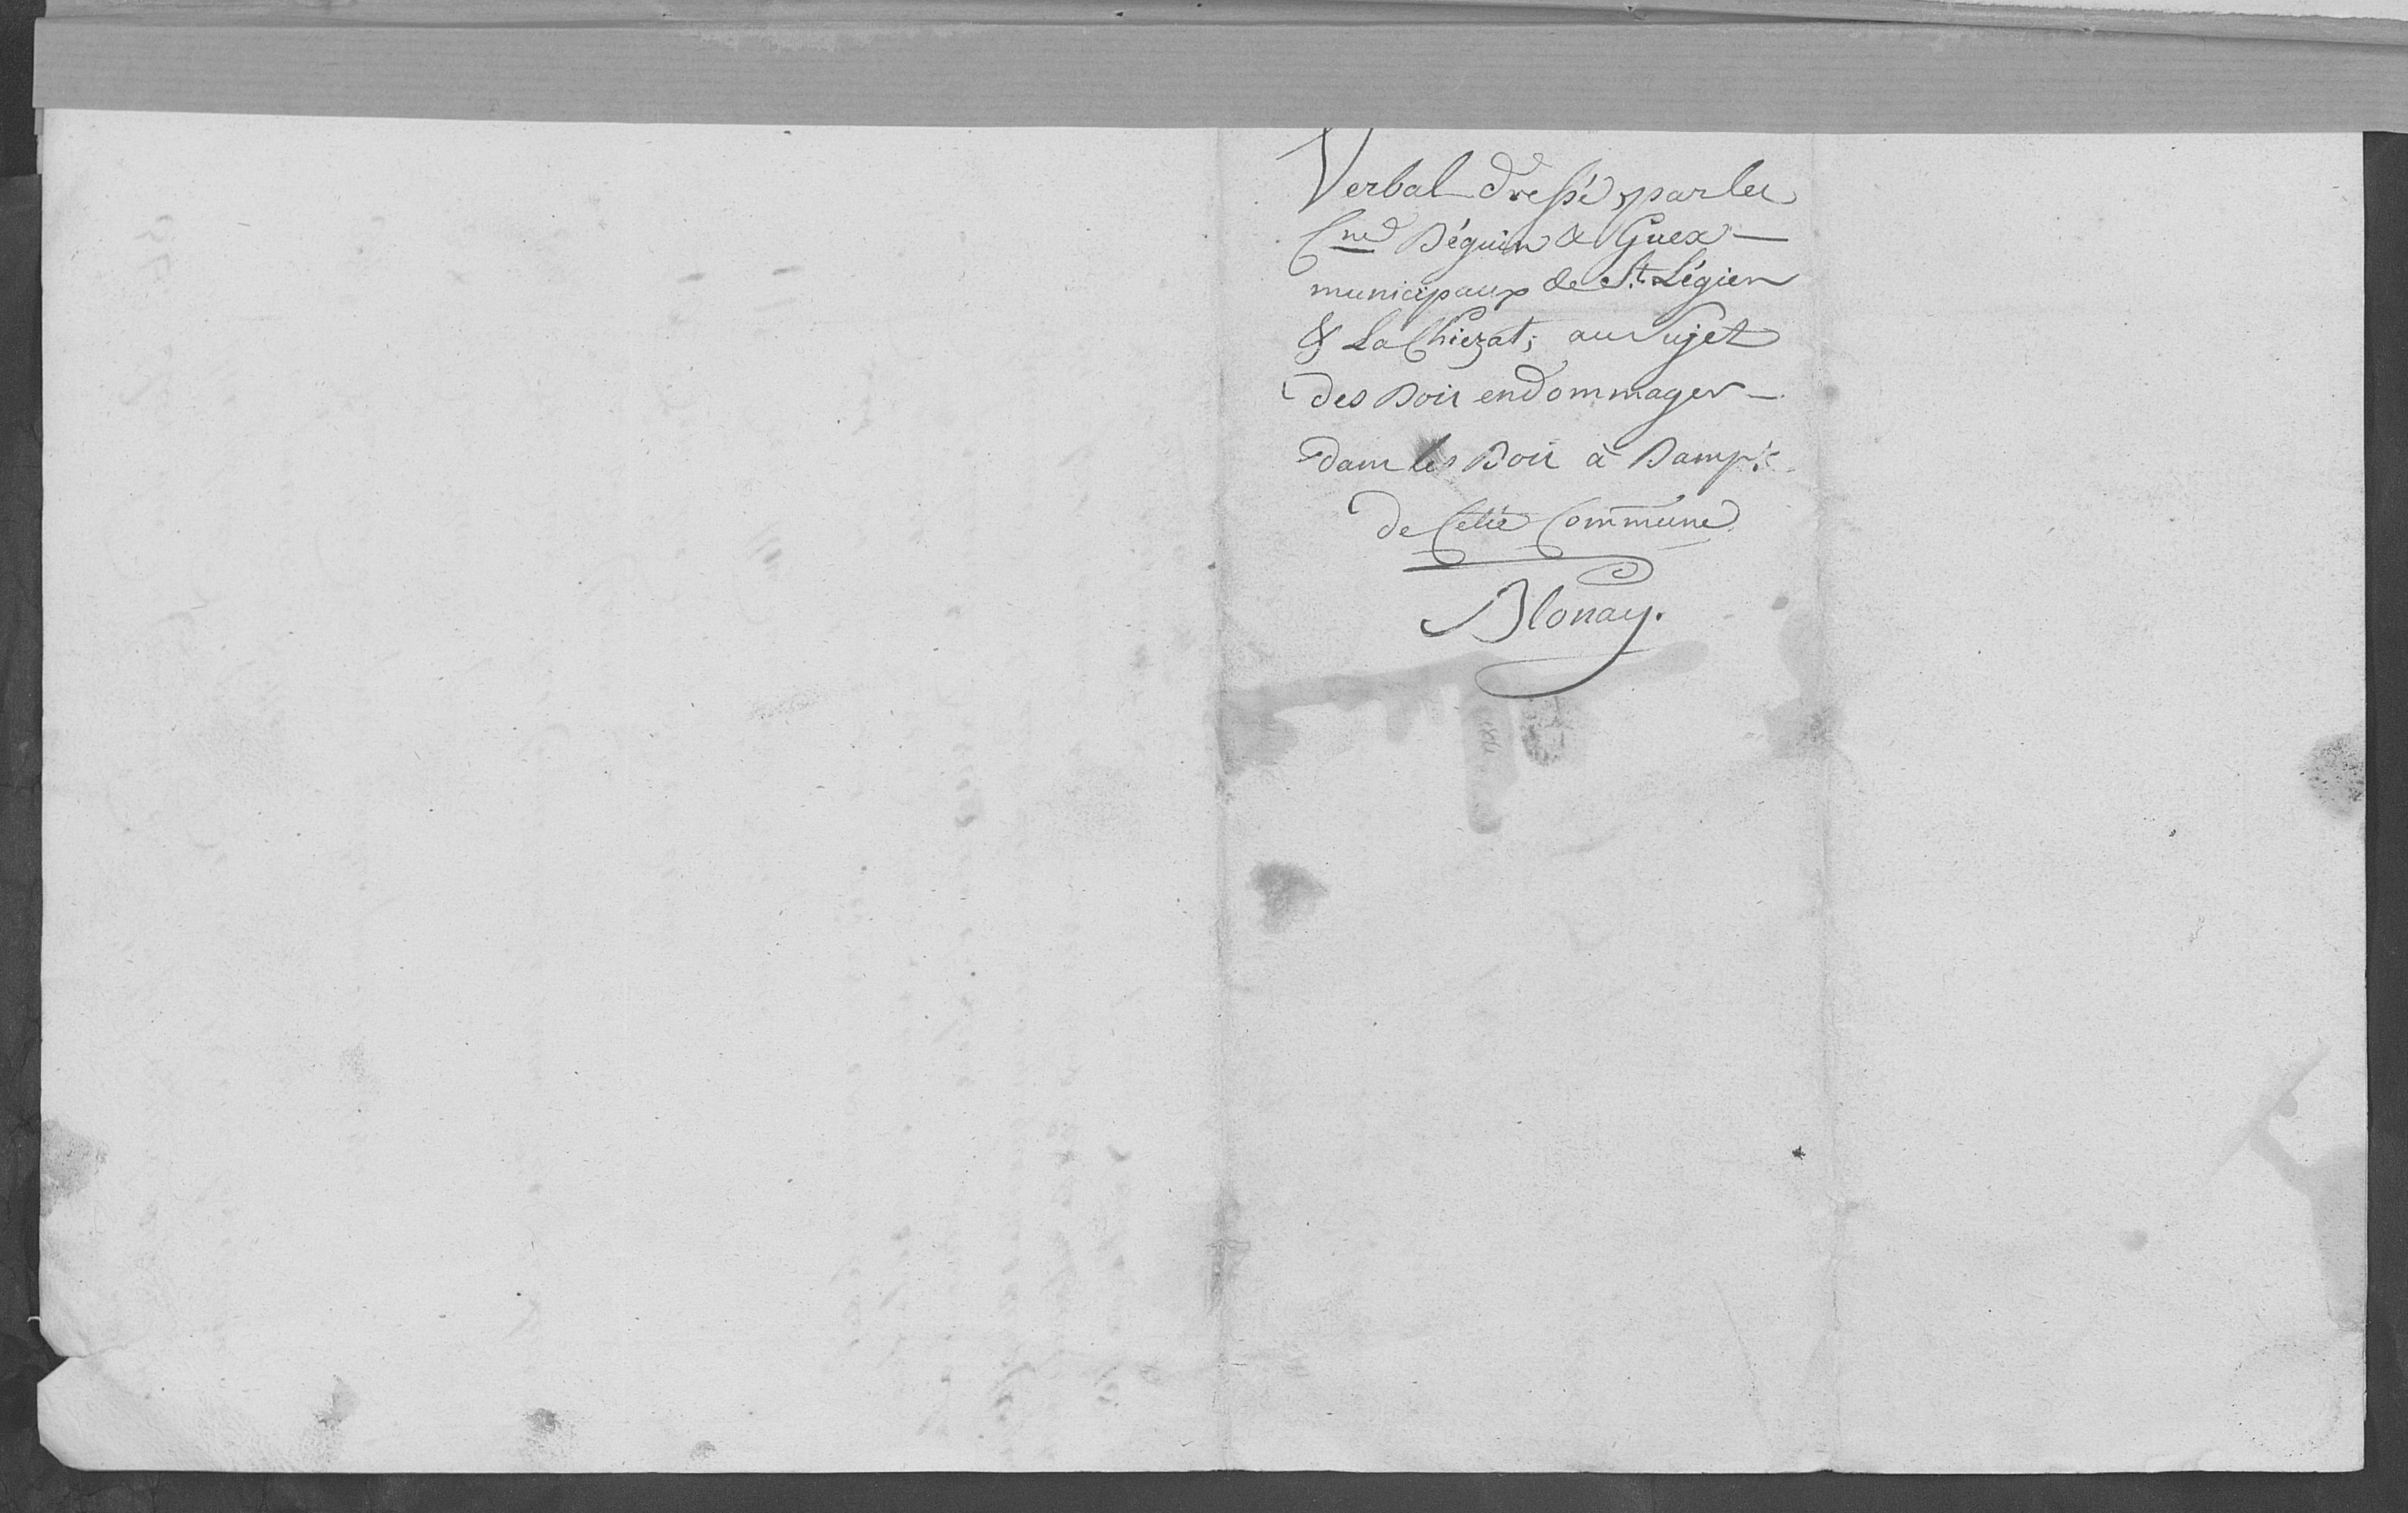 Verbal dressé par les
Cns Béguin & Guex —
municipaux de St. Légier
& La Chiezat; au Sujet
des Bois endommager —
dans les Bois à Bamp
de Cette Commune
Blonay.